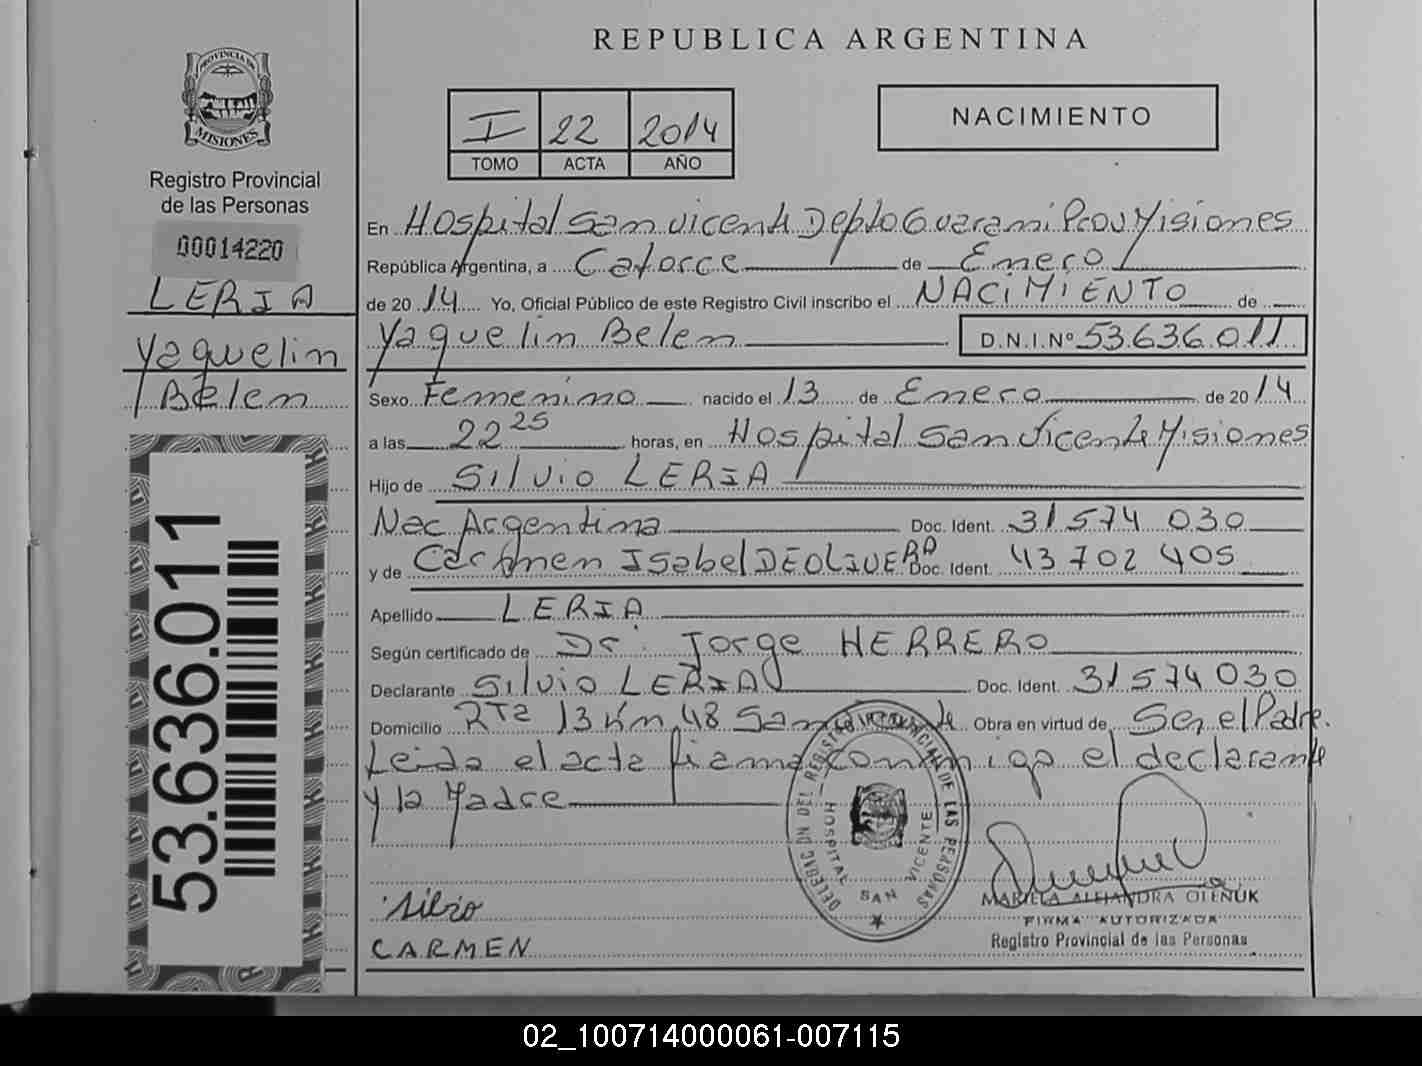 PROVINCIA DE
MISIONES
Registro Provincial
de las Personas
00014220
LERIA
Yaquelin
Belen
53.636.011
REPUBLICA ARGENTINA
I 22 2014
TOMO ACTA AÑO
NACIMIENTO
En Hospital San vicente Depto Guarani Prov Misiones
República Argentina, a Catorce de Enero
de 20 14 Yo, Oficial Público de este Registro Civil inscribo el NACIMIENTO de
Yaquelin Belen D.N.I.Nº 53.636.011
Sexo Femenino nacido el 13 de Enero de 20 14
a las 22 25 horas, en Hospital San Vicente Misiones
Hijo de Silvio LERIA
Nac Argentina Doc. Ident. 31 574 030
y de Carmen Isabel DEOLIVERA Doc. Ident. 43 702 405
Apellido LERIA
Según certificado de Dr: Jorge HERRERO
Declarante Silvio LERIA Doc. Ident. 31 574 030
Domicilio RTa 13 Km 48 San vicente Obra en virtud de Ser el Padre.
Leida el acta firma conmigo el declarante
y la Madre
DELEGACION DEL REGISTRO PROVINCIAL DE LAS PERSONAS
HOSPITAL SAN VICENTE
silvio
CARMEN
MARIELA ALEJANDRA OLENUK
FIRMA AUTORIZADA
Registro Provincial de las Personas
02_100714000061-007115